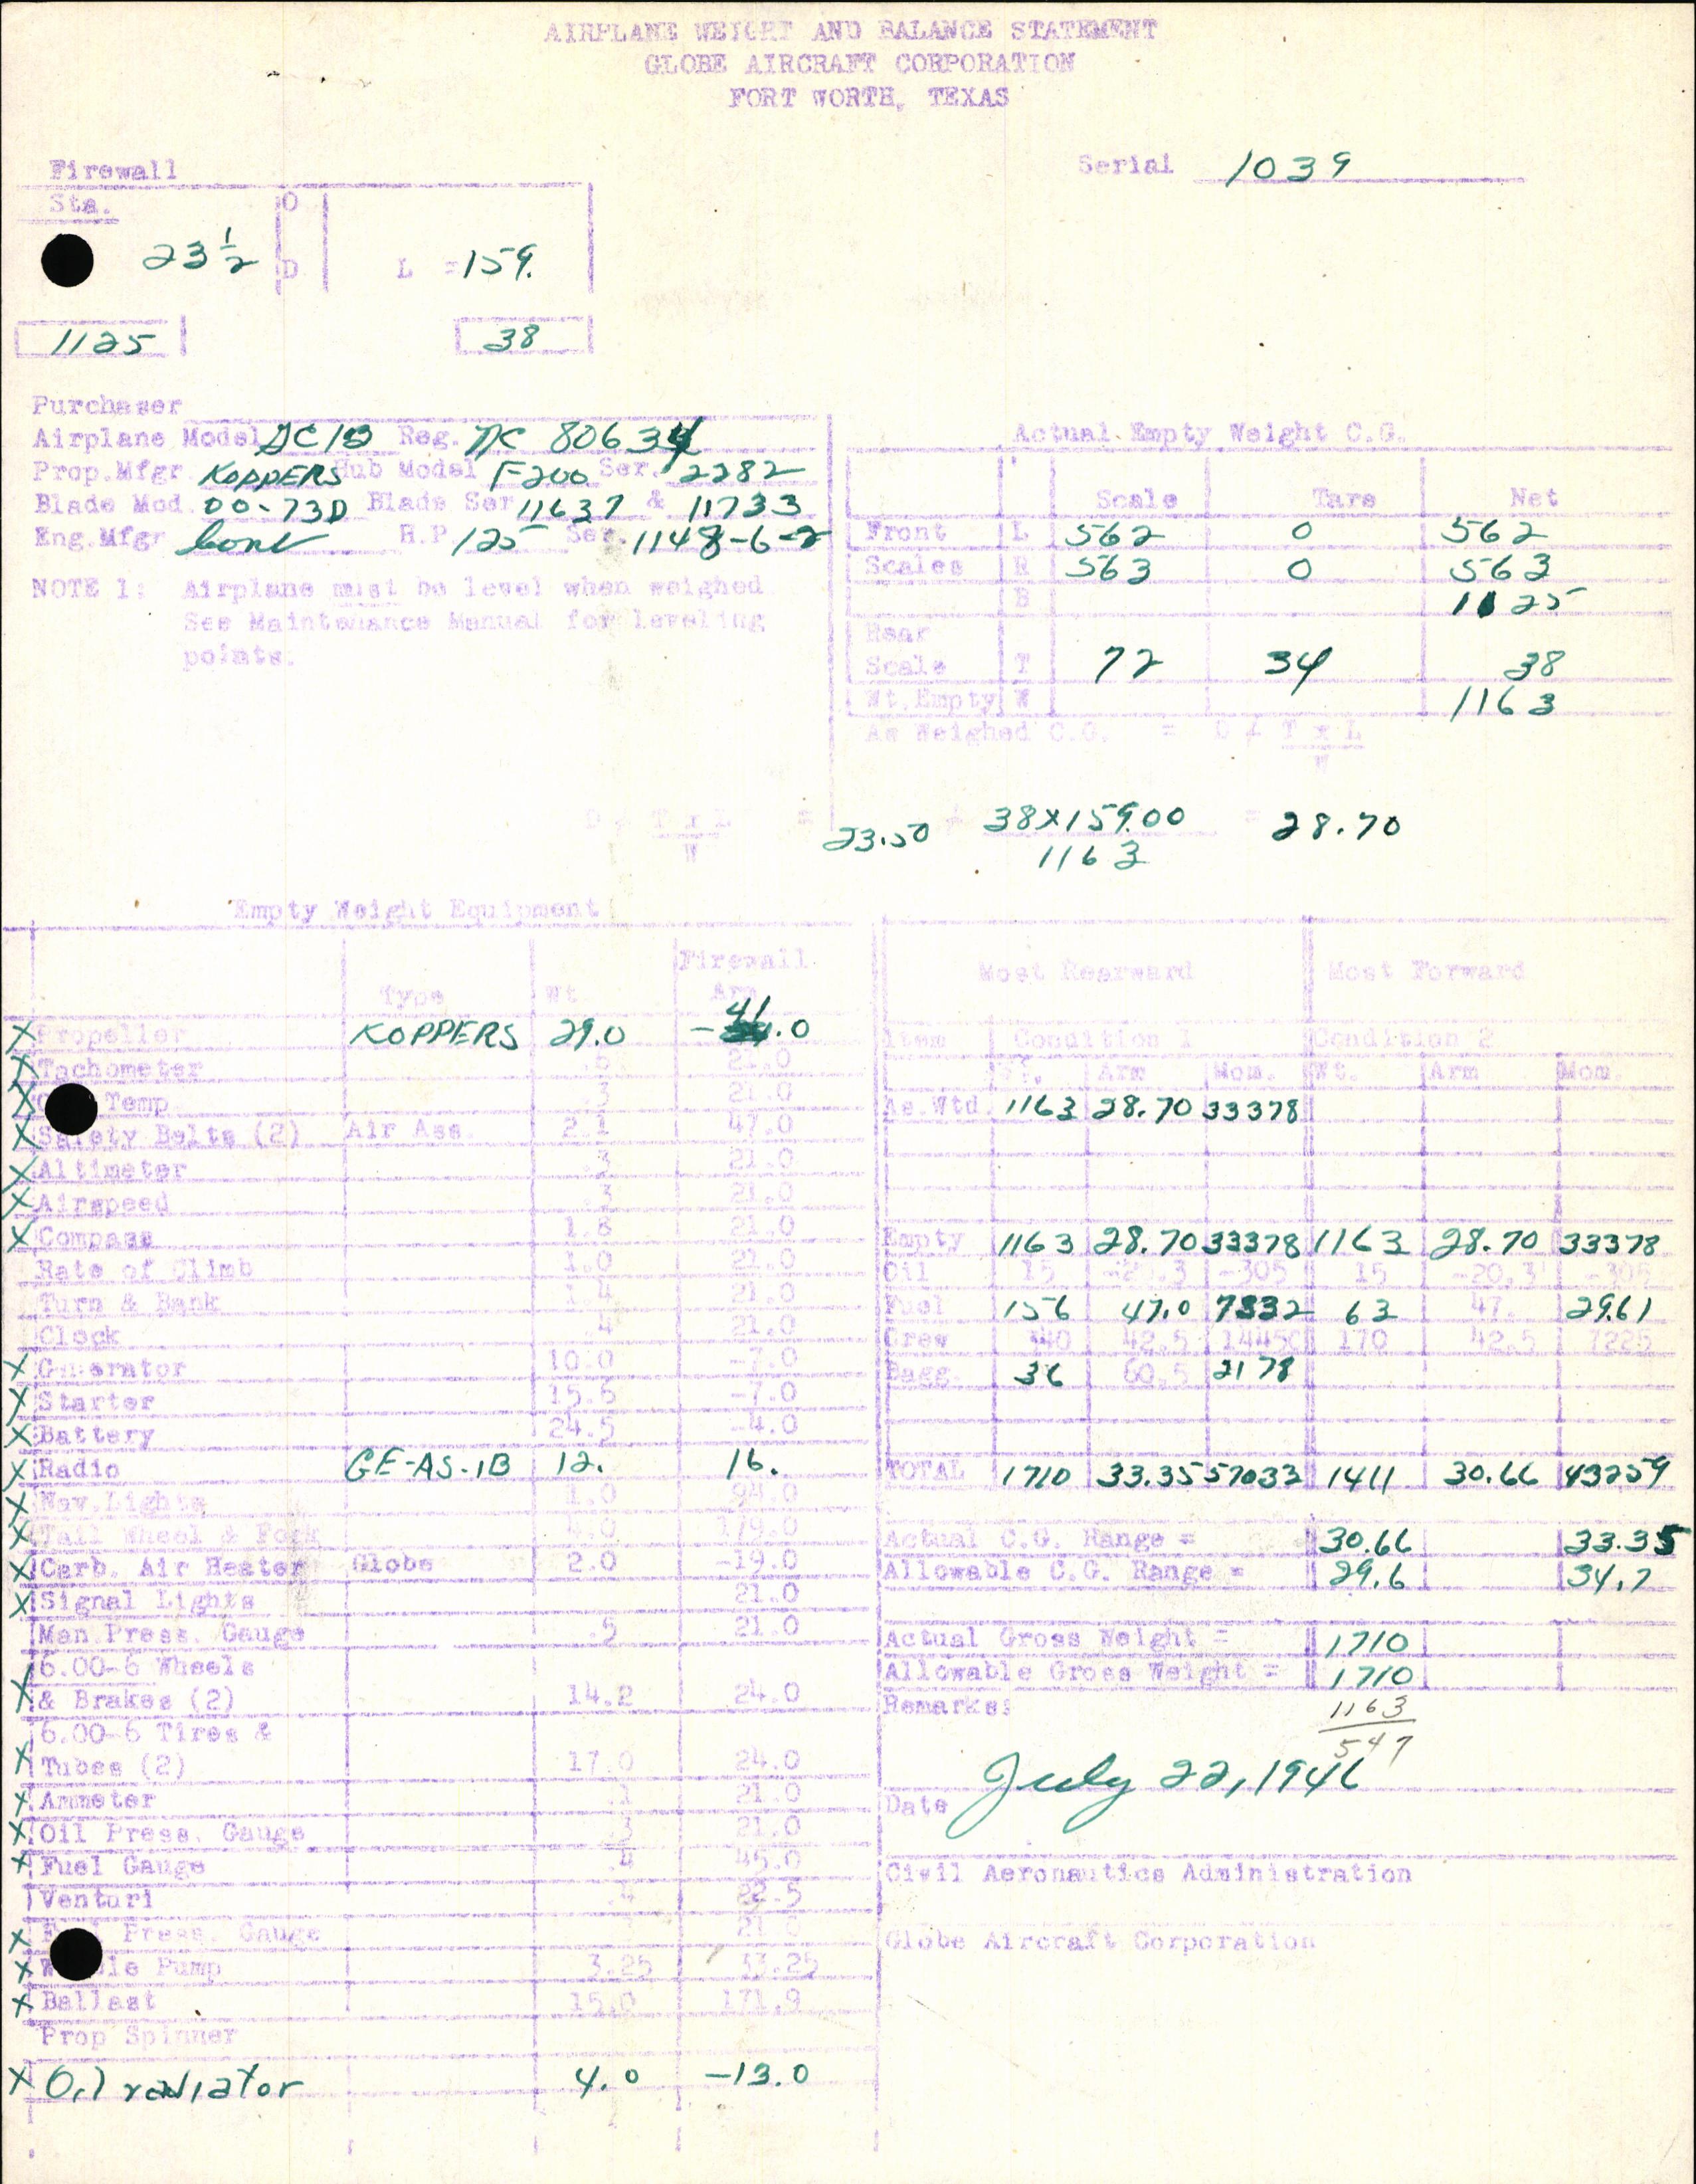 AIRPLANE WEIGHT AND BALANCE STATEMENT
GLOBE AIRCRAFT CORPORATION
FORT WORTH, TEXAS
Serial 1039
Firewall
Sta. O
23 1/2 D L = 159.
1125 38
Purchaser
Airplane Model GC1B Reg. NC 80634
Prop.Mfgr KOPPERS Hub Model F200 Ser. 2282
Blade Mod. 00-73D Blade Ser 11637 & 11733
Eng.Mfgr Cont H.P. 125 Ser. 1148-6-2
NOTE 1: Airplane must be level when weighed
See Maintenance Manual for leveling
points.
Actual Empty Weight C.G.
Scale Tare Net
Front L 562 0 562
Scales R 563 0 563
B 1125
Rear
Scale T 72 34 38
Wt.Empty W 1163
As Weighed C.G. = D / T x L
W
D / T x L = 23.50 / 38x159.00 = 28.70
W 1163
Empty Weight Equipment
Type Wt. Firewall Arm
X Propeller KOPPERS 29.0 -41.0
X Tachometer .8 21.0
X Temp .3 21.0
X Safety Belts (2) Air Ass. 2.1 47.0
X Altimeter .3 21.0
X Airspeed .3 21.0
X Compass 1.8 21.0
Rate of Climb 1.0 21.0
Turn & Bank 1.4 21.0
Clock .4 21.0
X Generator 10.0 -7.0
X Starter 15.5 -7.0
X Battery 24.5 -4.0
X Radio GE-AS-1B 12. 16.
X Nav.Lights 1.0 94.0
X Tail Wheel & Fork 4.0 179.0
X Carb. Air Heater Globe 2.0 -19.0
X Signal Lights 21.0
Man.Press. Gauge .5 21.0
6.00-6 Wheels
X & Brakes (2) 14.2 24.0
6.00-6 Tires &
X Tubes (2) 17.0 24.0
X Ammeter .1 21.0
X Oil Press. Gauge .3 21.0
X Fuel Gauge .4 45.0
Venturi .4 22.5
X Press. Gauge
X Pump 3.25 33.25
X Ballast 15.0 171.9
Prop Spinner
X Oil radiator 4.0 -13.0
Most Rearward Most Forward
Item Condition 1 Condition 2
Wt. Arm Mom. Wt. Arm Mom.
As.Wtd. 1163 28.70 33378
Empty 1163 28.70 33378 1163 28.70 33378
Oil 15 -20.3 -305 15 -20.3 -305
Fuel 156 47.0 7332 63 47. 2961
Crew 340 42.5 14450 170 42.5 7225
Bagg. 36 60.5 2178
TOTAL 1710 33.35 57033 1411 30.66 43259
Actual C.G. Range = 30.66 33.35
Allowable C.G. Range = 29.6 34.7
Actual Gross Weight = 1710
Allowable Gross Weight = 1710
Remarks: 1163
547
Date July 22, 1946
Civil Aeronautics Administration
Globe Aircraft Corporation